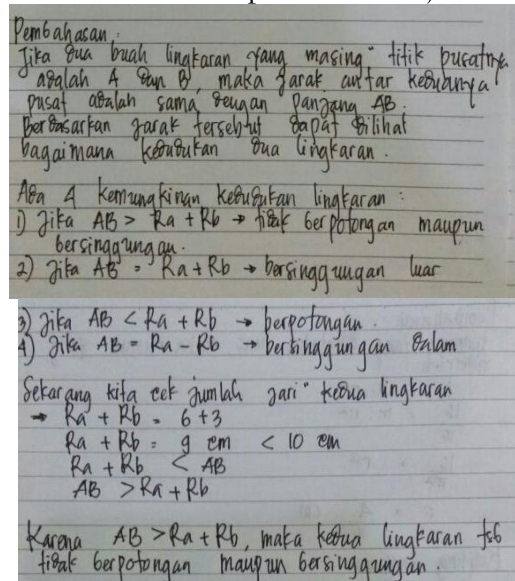 Pembahasan :
Jika dua buah lingkaran yang masing" titik pusatnya
adalah A dan B, maka jarak antar keduanya
pusat adalah sama dengan panjang AB.
Berdasarkan jarak tersebut dapat dilihat
bagaimana kedudukan dua lingkaran.
Ada 4 kemungkinan kedudukan lingkaran :
1) Jika AB > Ra + Rb → tidak berpotongan maupun
bersinggungan.
2) Jika AB = Ra + Rb → bersinggungan luar
3) Jika AB < Ra + Rb → berpotongan.
4) Jika AB = Ra - Rb → bersinggungan dalam
Sekarang kita cek jumlah jari" kedua lingkaran
→ Ra + Rb = 6 + 3
Ra + Rb = 9 cm < 10 cm
Ra + Rb < AB
AB > Ra + Rb
Karena AB > Ra + Rb, maka kedua lingkaran tsb
tidak berpotongan maupun bersinggungan.